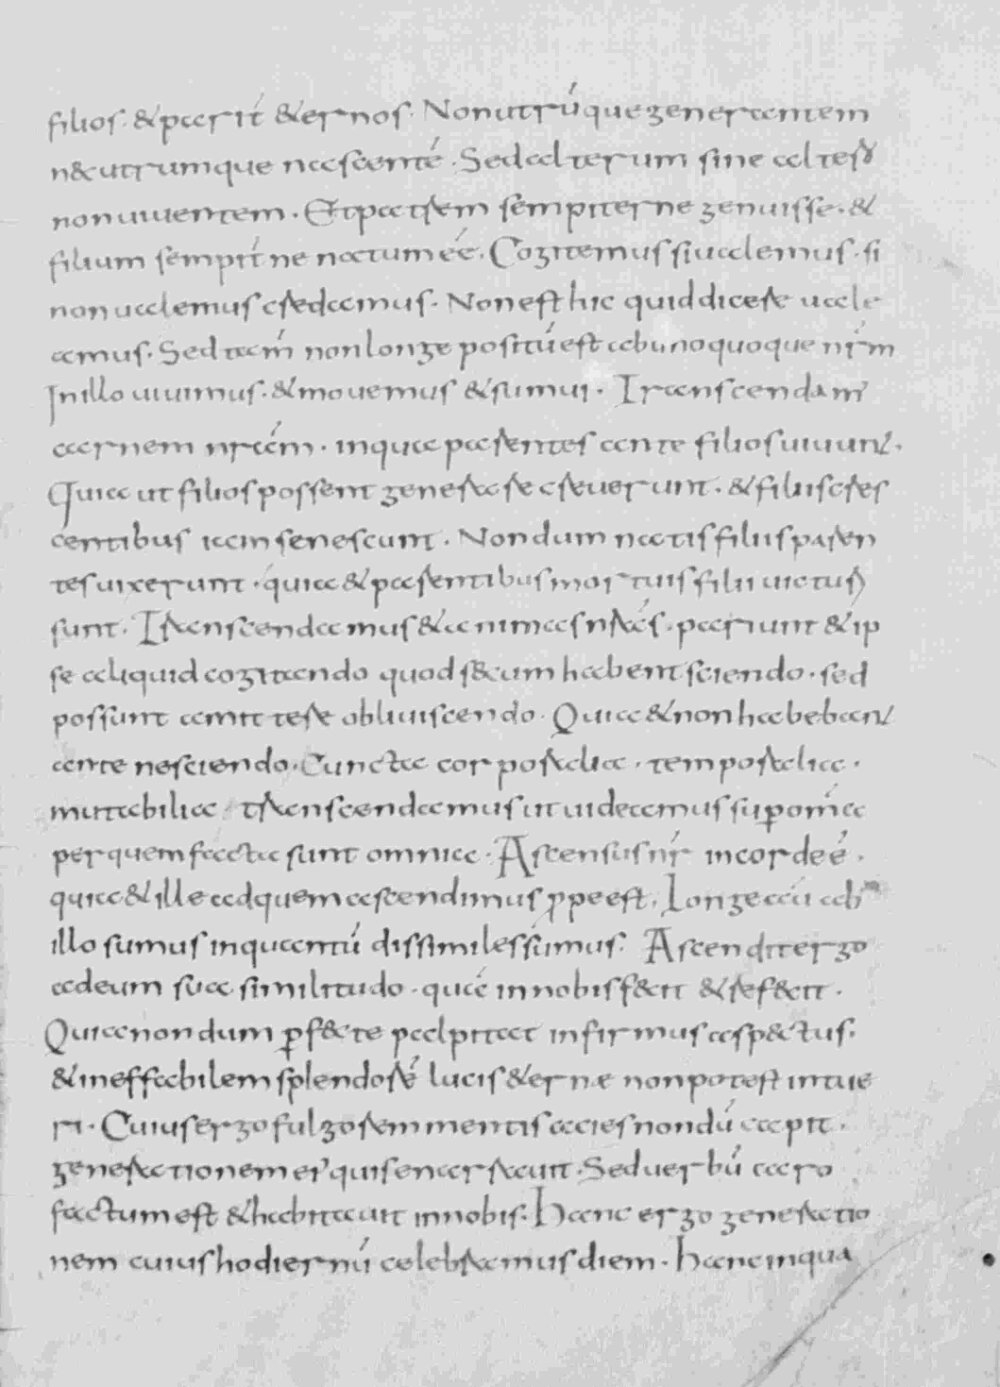 filios · & parit́ & ernos · Non utrū́que generantem
n& utrumque nascenté · Sed alterum sine altero
non uiuentem · Et patrem sempiterne genuisse · &
filium sempit́ne natum eé · Cogitemus si ualemus · si
non ualemus credamus · Non est hic quid dicere uale
amus · Sed tam̄ non longe positū est ab uno quoque nr̄m
In illo uiuimus · & mouemus & sumus · Transcendam'
carnem nrám · in qua parentes ante filios uiuunt ·
Quia ut filios possent generare creuerunt · & filiis cres
centibus iam senescunt · Nondum natis filiis paren
tes uixerunt · quia & parentibus mortuis filii uicturi
sunt · Transcendamus & animas nrás · pariunt & ip
se aliquid cogitando quod secum habent sciendo · sed
possunt amittere obliuiscendo · Quia & non habebant
ante nesciendo · Cuncta corporalia · temporalia ·
mutabilia · transcendamus ut uideamus sup omía
per quem facta sunt omnia · Ascensus nr̄ in corde é ·
quia & ille ad quem ascendimus ꝓpe est · Longe aū́ ab
illo sumus in quantū́ dissimiles sumus · Ascendit ergo
ad eum sua similitudo · quae in nobis fecit & refecit ·
Quia nondum ꝑfecte palpitat infirmus aspectus ·
& ineffabilem splendoré lucis & ernæ non potest intue
ri · Cuius ergo fulgorem mentis acies nondū́ capit ·
generationem ei' quis enarrauit · Sed uerbū́ caro
factum est & habitauit in nobis · Hanc ergo generatio
nem cuius hodiernū́ celebramus diem · hanc inqua